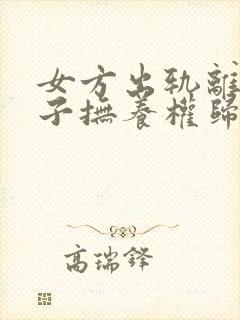 女方出轨離
子撫養權歸
高瑞鋒